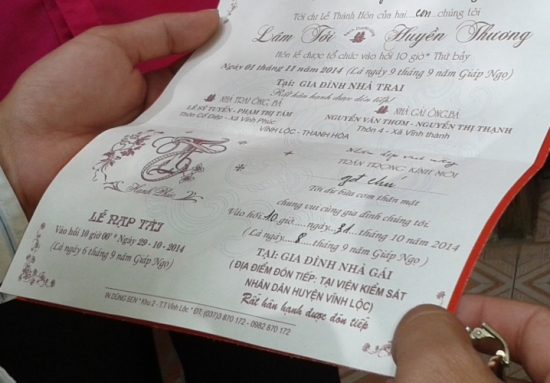 Tới dự Lễ Thành Hôn của hai con chúng tôi
Lâm Tới Huyền Thương
Hôn lễ được tổ chức vào hồi 10 giờ * Thứ bảy
Ngày 01 tháng 11 năm 2014 (Là ngày 9 tháng 9 năm Giáp Ngọ)
Tại: GIA ĐÌNH NHÀ TRAI
Rất hân hạnh được đón tiếp!
NHÀ TRAI ÔNG BÀ
LÊ SỸ TUYỂN - PHẠM THỊ TÁM
Thôn Cổ Điệp - Xã Vĩnh Phúc
NHÀ GÁI ÔNG BÀ
NGUYỄN VĂN THƠM - NGUYỄN THỊ THẠNH
Thôn 4 - Xã Vĩnh thành
VĨNH LỘC - THANH HÓA
Hạnh Phúc
LỄ RẠP TẠI
Vào hồi 10 giờ 00' * Ngày 29 - 10 - 2014
(Là ngày 6 tháng 9 năm Giáp Ngọ)
Nhân dịp vui này
TRÂN TRỌNG KÍNH MỜI
Tới dự bữa cơm thân mật
chung vui cùng gia đình chúng tôi.
Vào hồi 10 giờ ngày 31 tháng 10 năm 2014
(Là ngày 8 tháng 9 năm Giáp Ngọ)
TẠI: GIA ĐÌNH NHÀ GÁI
(ĐỊA ĐIỂM ĐÓN TIẾP: TẠI VIỆN KIỂM SÁT
NHÂN DÂN HUYỆN VĨNH LỘC)
Rất hân hạnh được đón tiếp
IN DŨNG SEN * Khu 2 - TT Vĩnh Lộc * ĐT: (037)3 870 172 - 0982 870 172